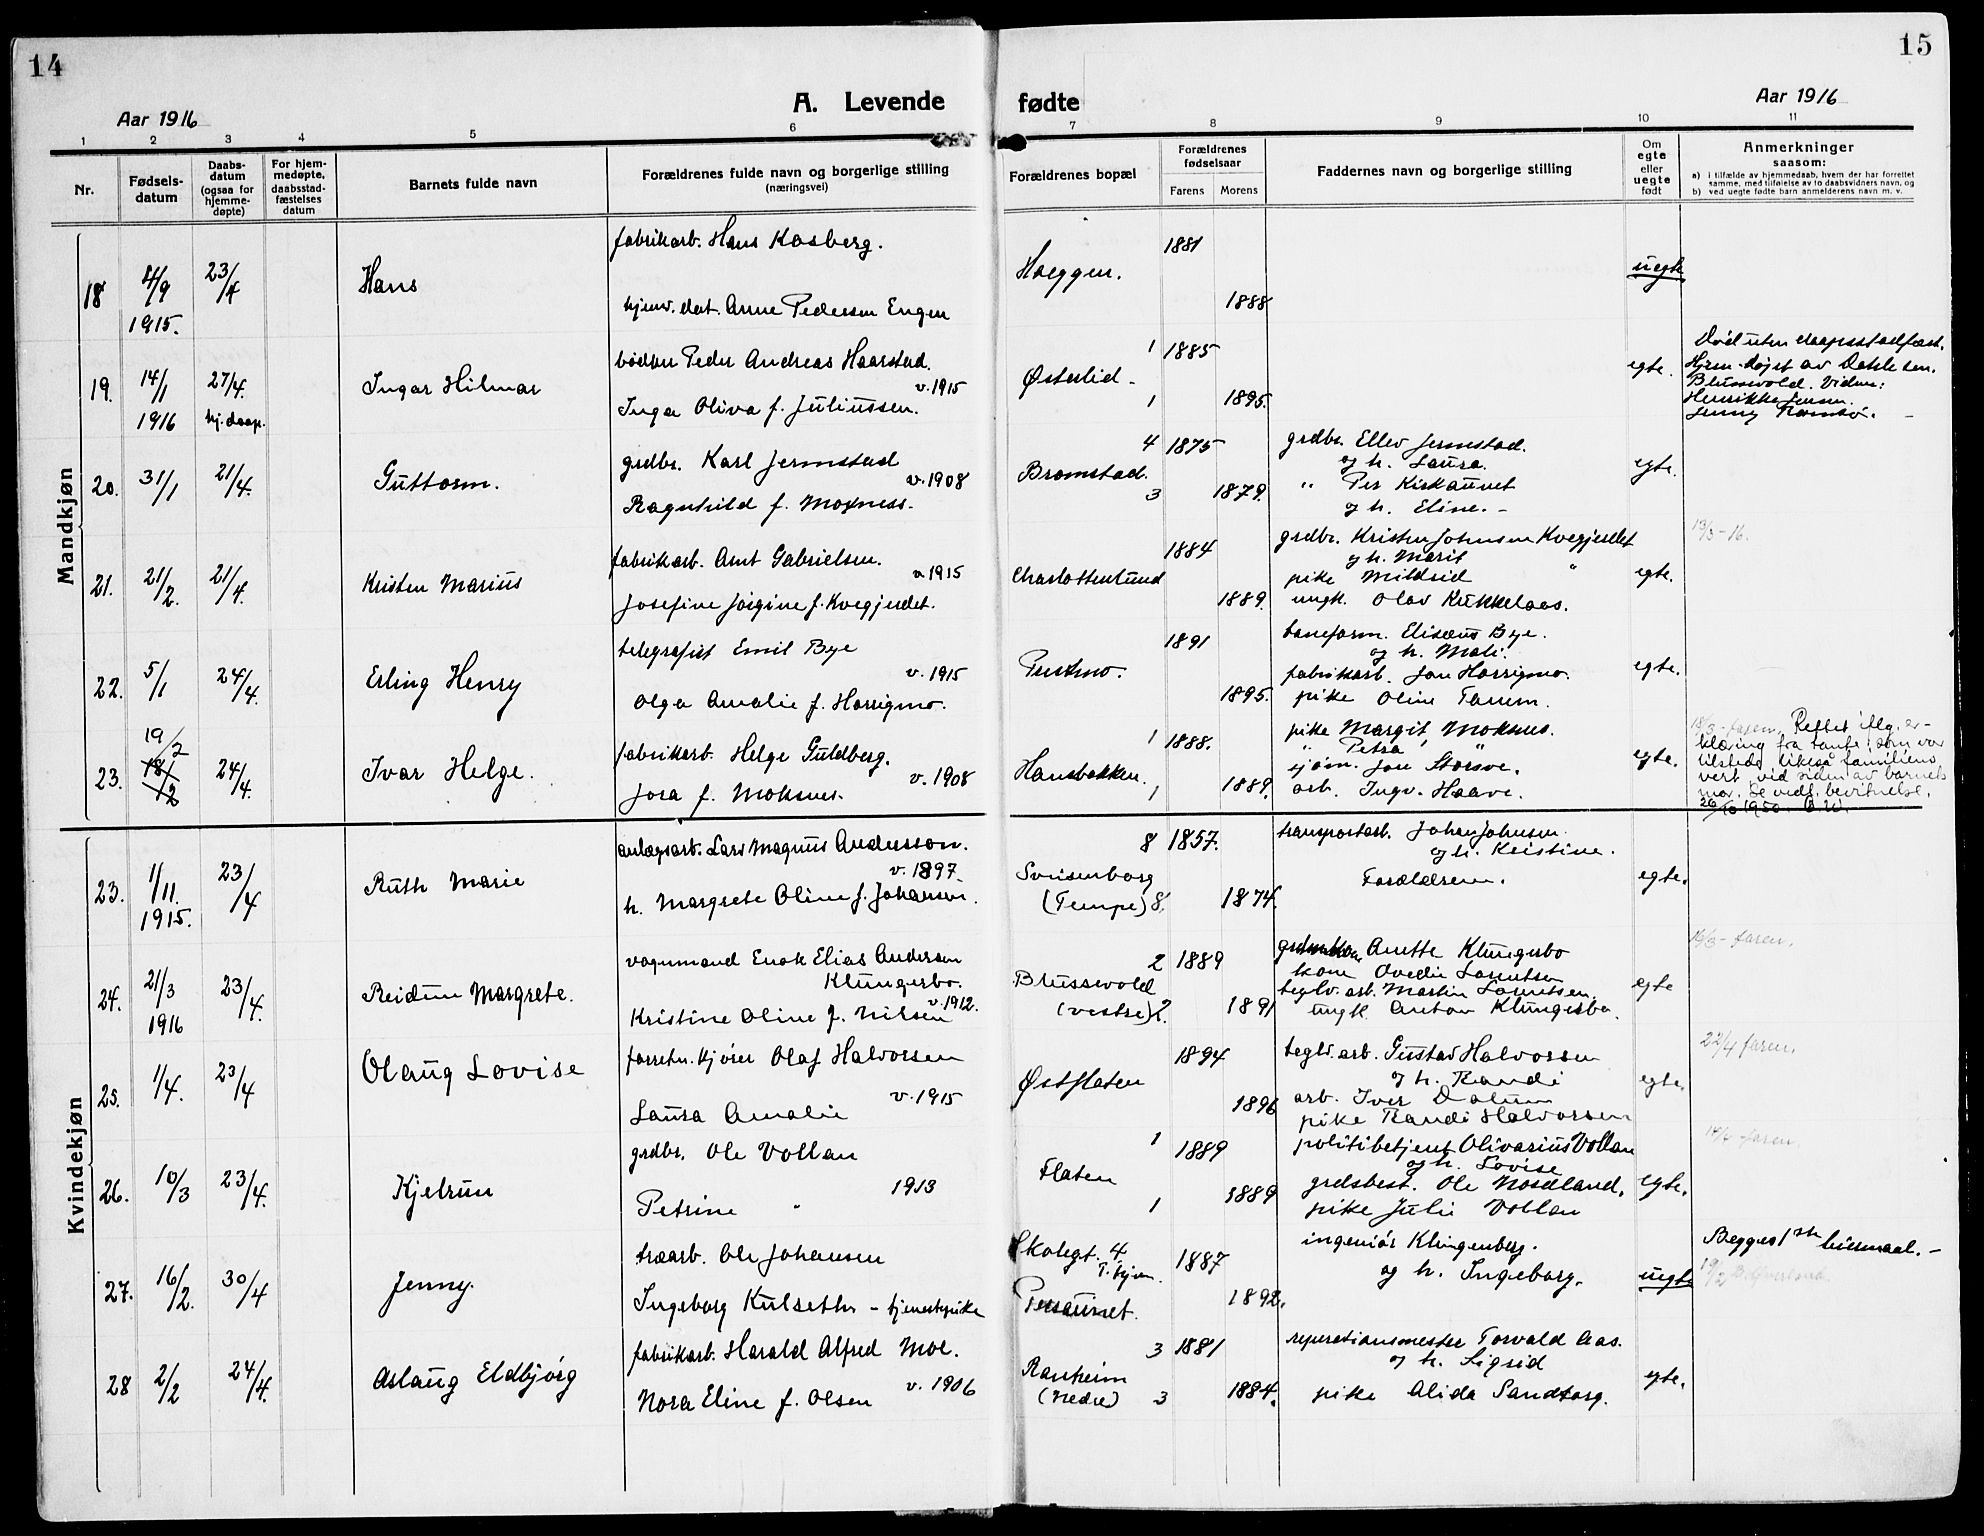 14
15
A. Levende fødte
Aar 1916
Aar 1916
1 2 3 4 5 6 7 8 9 10 11
Nr.
Fødsels-
datum
Daabs-
datum
(ogsaa for
hjemme-
døpte)
For hjem-
medøpte,
daabsstad-
fæstelses
datum
Barnets fulde navn
Forældrenes fulde navn og borgerlige stilling
(næringsvei)
Forældrenes bopæl
Forældrenes
fødselsaar
Farens Morens
Faddernes navn og borgerlige stilling
Om
egte
eller
uegte
født
Anmerkninger
saasom:
a) i tilfælde av hjemmedaab, hvem der har forrettet
samme, med tilføielse av to daabsvidners navn, og
b) ved uegte fødte barn anmelderens navn m. v.
Mandkjøn
fabrikarb. Hans Kosberg. 1881
18 4/9 23/4 Hans Hoeggen. uegte
1915. hjemv. dat. Anne Pedersen Engen 1888
bødker Peder Andreas Haarstad. 1 1885
19. 14/1 27/4. Ingar Hilmar v. 1915 Østerlid - egte.
1916 hj. daap. Inga Oliva f. Juliussen. 1 1895.
Død uten daapsstadfæst.
Hjem.døpt av
Blussvold. Vidner:
Henrikke Jensen.
Jenny
grdbr. Karl Jermstad 4 1875 grdbr. Ellev Jermstad.
og h. Laura.
20. 31/1 21/4. Guttorm. v. 1908 Bromstad. " Per Kirkaunet egte.
Ragnhild f. Moxness. 3 1879. og h. Eline. -
fabrikarb. Arnt Gabrielsen. 1884 grdbr. Kristen Johnsen Kvegjerdet 13/3-16.
og h. Marit
21. 21/2. 21/4. Kristen Marius v. 1915 Charlottenlund pike Mildrid " egte.
Josefine Jørgine f. Kvegjerdet. 1889. ungk. Olav Kukkelaas.
telegrafist Emil Bye 1891 baneform. Eliseus Bye.
og h. Mali.
22. 5/1 24/4. Erling Henry v. 1915 Presthmo. fabrikarb. Jon Horrigmo. egte.
Olga Amalie f. Horrigmo. 1895. pike Oline Tanem.
19/2 fabrikarb. Helge Guldberg. 1 1888. pike Margit Moksnes.
" Petra "
23. 18/2 24/4. Ivar Helge. v. 1908 Hansbakken. sjøm. Jon Storsve. egte.
Jora f. Moksnes. 1 1889. arb. Ingv. Haave.
18/3 - faren. Rettet iflg. er-
klæring fra tante, som var
tilstede likeså familiens
vert, vid siden av barnets
mor. Se vedl. bevitnelse.
26/10 1950. O.W.
Kvindekjøn
anlægsarb. Lars Magnus Andersson. 8 1857. transportarb. Johan Johnsen
v. 1897. og h. Kristine.
23. 1/11. 23/4 Ruth Marie Svinsenborg Forældrene. egte.
1915. h. Margrete Oline f. Johansen. (Tempe) 8. 1874.
vognmand Enok Elias Andersen 2 1889 Anette Klungerbo 16/3 - faren.
Klungerbo. kone Ovedie Lorentsen
24. 21/3 23/4. Reidun Margrete. v. 1912. Blussvold teglv. arb. Martin Lorentsen. egte
1916 Kristine Oline f. Nilsen (vestre) 2. 1891 ungk. Anton Klungerbo.
forretn. kjører Olaf Halvorsen 1894 teglv. arb. Gustav Halvorsen 22/4 faren.
25. 1/4. 23/4 Olaug Lovise Østflaten og h. Randi egte.
v. 1915 arb. Iver Dalum
Laura Amalie 1896 pike Randi Halvorsen
grdbr. Ole Vollan 1 1889 politibetjent Olivarius Vollan 14/4 - faren.
og h. Lovise
26. 10/3 23/4. Kjelrun 1913 Flaten grdsbest. Ole Moseland. egte.
Petrine " 1 1889 pike Julie Vollan
træarb. Ole Johansen Skolegt. 4 1887 ingeniør Klingenberg. Begges 1ste leiermaal. -
27. 16/2. 30/4 Jenny. T. hjem. og h. Ingeborg. uegte
Ingeborg Kulseth - tjenestepike Persaunet. 1892.
fabrikarb. Harald Alfred Moe. 3 1881 reparationsmester Torvald Aas.
og h. Sigrid
28 2/2 24/4. Aslaug Eldbjørg v. 1906 Ranheim egte.
Nora Eline f. Olsen (Nedre) 3 1884. pike Alida Sandtorg.